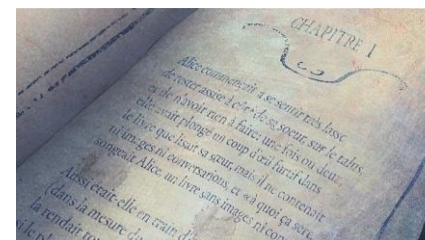 CHAPITRE I
Alice commençait à se sentir très lasse
de rester assise à côté de sa soeur, sur le talus,
et de n'avoir rien à faire: une fois ou deux,
elle avait plongé un coup d'œil furtif dans
le livre que lisait sa sœur, mais il ne contenait
ni images ni conversations, et «à quoi ça sert,
songeait Alice, un livre sans images ni con
Aussi était-elle en train d'
(dans la mesure du
la rendait to